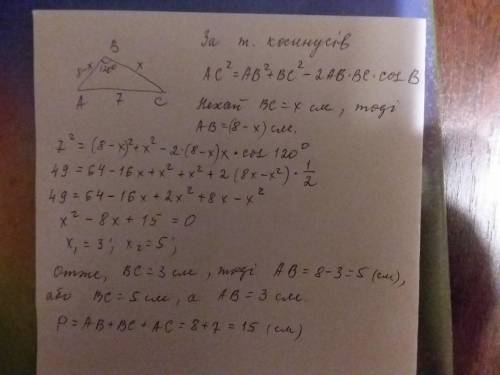 За т. косинусів
B
8-x 120° x
A 7 C
AC² = AB² + BC² - 2AB·BC·cos B
Нехай BC = x см, тоді
AB = (8-x) см.
7² = (8-x)² + x² - 2·(8-x)x·cos 120°
49 = 64 - 16x + x² + x² + 2(8x - x²)·1/2
49 = 64 - 16x + 2x² + 8x - x²
x² - 8x + 15 = 0
x₁ = 3; x₂ = 5;
Отже, BC = 3 см, тоді AB = 8 - 3 = 5 (см),
або BC = 5 см, а AB = 3 см.
P = AB + BC + AC = 8 + 7 = 15 (см)